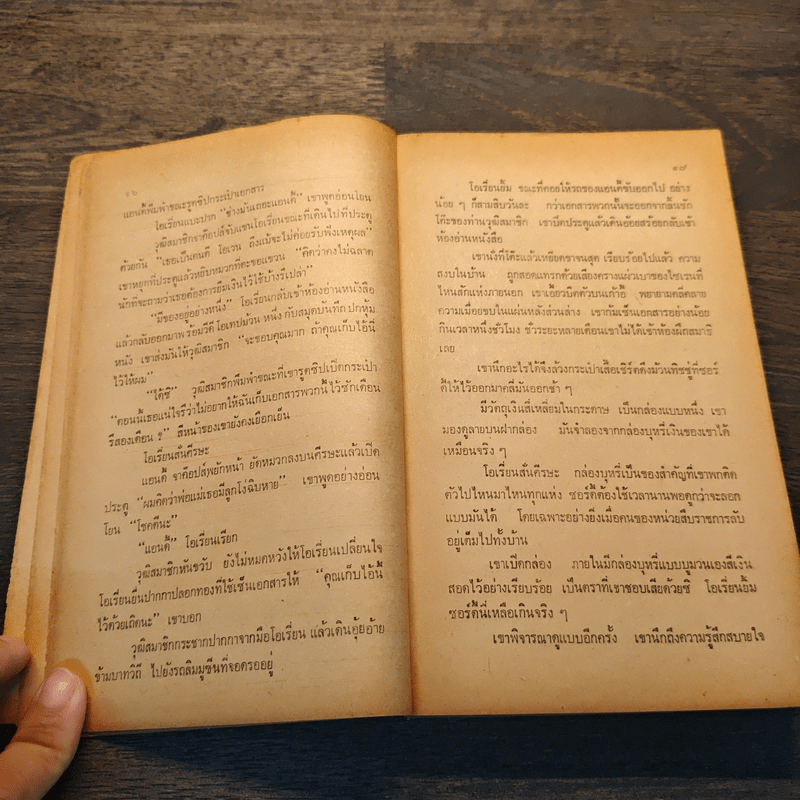 ๑๖
แอนดี้พึมพำขณะรูดซิปกระเป๋าเอกสาร
โอเรียนแบะปาก “ช่างมันเถอะแอนดี้” เขาพูดอ่อนโยน
วุฒิสมาชิกจาคือปส์จับแขนโอเรียนขณะที่เดินไปที่ประตู
ด้วยกัน “เธอเป็นคนดี โอเวน ถึงแม้จะไม่ค่อยรับฟังเหตุผล”
เขาหยุดที่ประตูแล้วหยิบหมวกที่ตะขอแขวน “คิดว่าคงไม่ฉลาด
นักที่จะถามว่าเธอต้องการยืมเงินไว้ใช้บ้างรึเปล่า”
“มีของอยู่อย่างหนึ่ง” โอเรียนกลับเข้าห้องอ่านหนังสือ
แล้วกลับออกมาพร้อมวีดีโอเทปม้วนหนึ่ง กับสมุดบันทึกปกหุ้ม
หนัง เขาส่งมันให้วุฒิสมาชิก “จะขอบคุณมาก ถ้าคุณเก็บไอ้นี่
ไว้ให้ผม”
“ได้ซี” วุฒิสมาชิกพึมพำขณะที่เขารูดซิปเปิดกระเป๋า
“ตอนนี้เธอแน่ใจรึว่าไม่อยากให้ฉันเก็บเอกสารพวกนี้ไว้ซักเดือน
รึสองเดือน ?” สีหน้าของเขายังคงเยือกเย็น
โอเรียนสั่นศีรษะ
แอนดี้ จาคือปส์พยักหน้า ยัดหมวกลงบนศีรษะแล้วเปิด
ประตู “ผมคิดว่าพ่อแม่เธอมีลูกโง่ฉิบหาย” เขาพูดอย่างอ่อน
โยน “โชคดีนะ”
“แอนดี้” โอเรียนเรียก
วุฒิสมาชิกหันขวับ ยังไม่หมดหวังให้โอเรียนเปลี่ยนใจ
โอเรียนยื่นปากกาปลอกทองที่ใช้เซ็นเอกสารให้ “คุณเก็บไอ้นี่
ไว้ด้วยเถิดนะ” เขาบอก
วุฒิสมาชิกกระชากปากกาจากมือโอเรียน แล้วเดินอุ้ยอ้าย
ข้ามบาทวิถี ไปยังรถลิมมูซีนที่จอดรออยู่
๑๗
โอเรียนยิ้ม ขณะที่คอยให้รถของแอนดี้ขับออกไป อย่าง
น้อย ๆ ก็สามสิบวันละ กว่าเอกสารพวกนั้นจะออกจากลิ้นชัก
โต๊ะของท่านวุฒิสมาชิก เขาปิดประตูแล้วเดินอ้อยสร้อยกลับเข้า
ห้องอ่านหนังสือ
เขานั่งที่โต๊ะแล้วเหยียดขาจนสุด เรียบร้อยไปแล้ว ความ
สงบในบ้าน ถูกสอดแทรกด้วยเสียงครางแผ่วเบาของไซเรนที่
ไหนสักแห่งภายนอก เขาเอี้ยวบิดตัวบนเก้าอี้ พยายามคลี่คลาย
ความเมื่อยขบในแผ่นหลังส่วนล่าง เขาก้มเซ็นเอกสารอย่างน้อย
กินเวลาหนึ่งชั่วโมง ชั่วระยะหลายเดือนเขาไม่ได้เข้าห้องฝึกสมาธิ
เลย
เขานึกอะไรได้จึงล้วงกระเป๋าเสื้อเชิร์ตดึงม้วนทิชชู่ที่ซอร์
ดี้ให้ไว้ออกมาคลี่มันออกช้า ๆ
มีวัตถุเงินสี่เหลี่ยมในกระดาษ เป็นกล่องแบบหนึ่ง เขา
มองดูลายบนฝากล่อง มันจำลองจากกล่องบุหรี่เงินของเขาได้
เหมือนจริง ๆ
โอเรียนสั่นศีรษะ กล่องบุหรี่เป็นของสำคัญที่เขาพกติด
ตัวไปไหนมาไหนทุกแห่ง ซอร์ดี้ต้องใช้เวลานานพอดูกว่าจะลอก
แบบมันได้ โดยเฉพาะอย่างยิ่งเมื่อคนของหน่วยสืบราชการลับ
อยู่เต็มไปทั้งบ้าน
เขาเปิดกล่อง ภายในมีกล่องบุหรี่แบบบูมวนเองสีเงิน
สอดไว้อย่างเรียบร้อย เป็นตราที่เขาชอบเสียด้วยซิ โอเรียนยิ้ม
ซอร์ดี้นี่เหลือเกินจริง ๆ
เขาพิจารณาดูแบบอีกครั้ง เขานึกถึงความรู้สึกสบายใจ